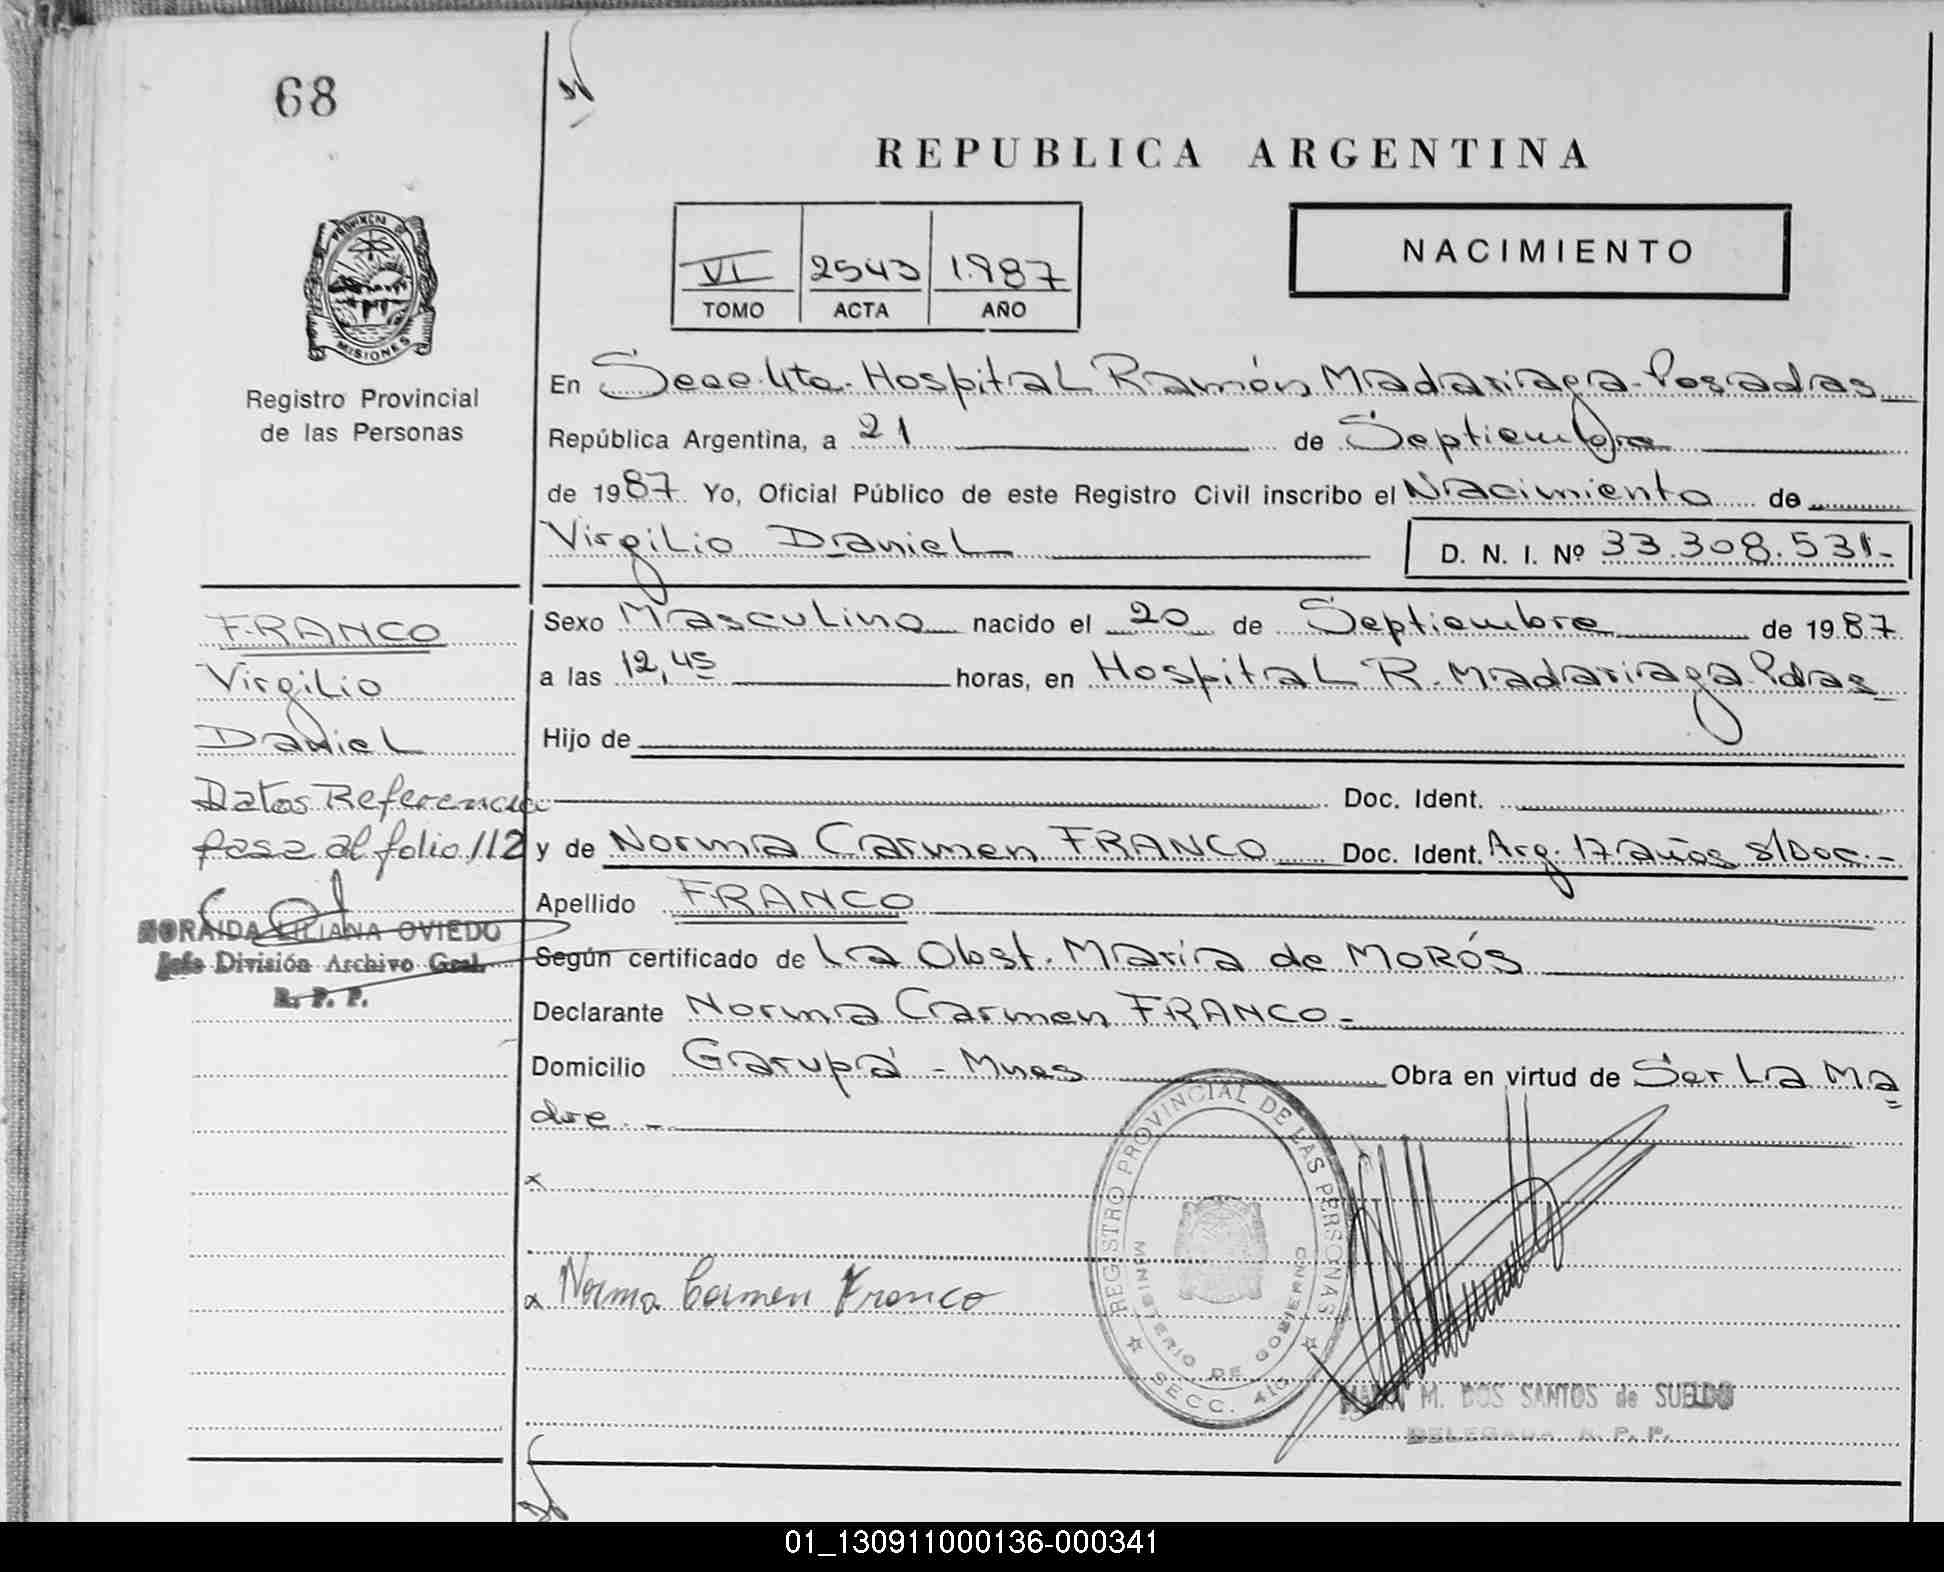 68
REPUBLICA ARGENTINA
VI 2543 1987
TOMO ACTA AÑO
NACIMIENTO
PROVINCIA DE
MISIONES
Registro Provincial
de las Personas
En Secc. 4ta. Hospital Ramón Madariaga - Posadas
República Argentina, a 21 de Septiembre
de 1987 Yo, Oficial Público de este Registro Civil inscribo el Nacimiento de
Virgilio Daniel D. N. I. Nº 33.308.531.-
FRANCO
Virgilio
Daniel
Datos Referencia
pasa al folio 112
ZORAIDA LILIANA OVIEDO
Jefe División Archivo Gral.
R. P. P.
Sexo Masculino nacido el 20 de Septiembre de 1987
a las 12,45 horas, en Hospital R. Madariaga Pdas
Hijo de
Doc. Ident.
y de Norma Carmen FRANCO Doc. Ident. Arg. 17 años s/Doc.-
Apellido FRANCO
Según certificado de La Obst. María de MORÓS
Declarante Norma Carmen FRANCO.-
Domicilio Garupá - Mnes Obra en virtud de Ser La Ma
dre.-
x
x Norma Carmen Franco
REGISTRO PROVINCIAL DE LAS PERSONAS
MINISTERIO DE GOBIERNO
SECC. 4ta
M. DOS SANTOS de SUELDO
DELEGADA R. P. P.
01_130911000136-000341